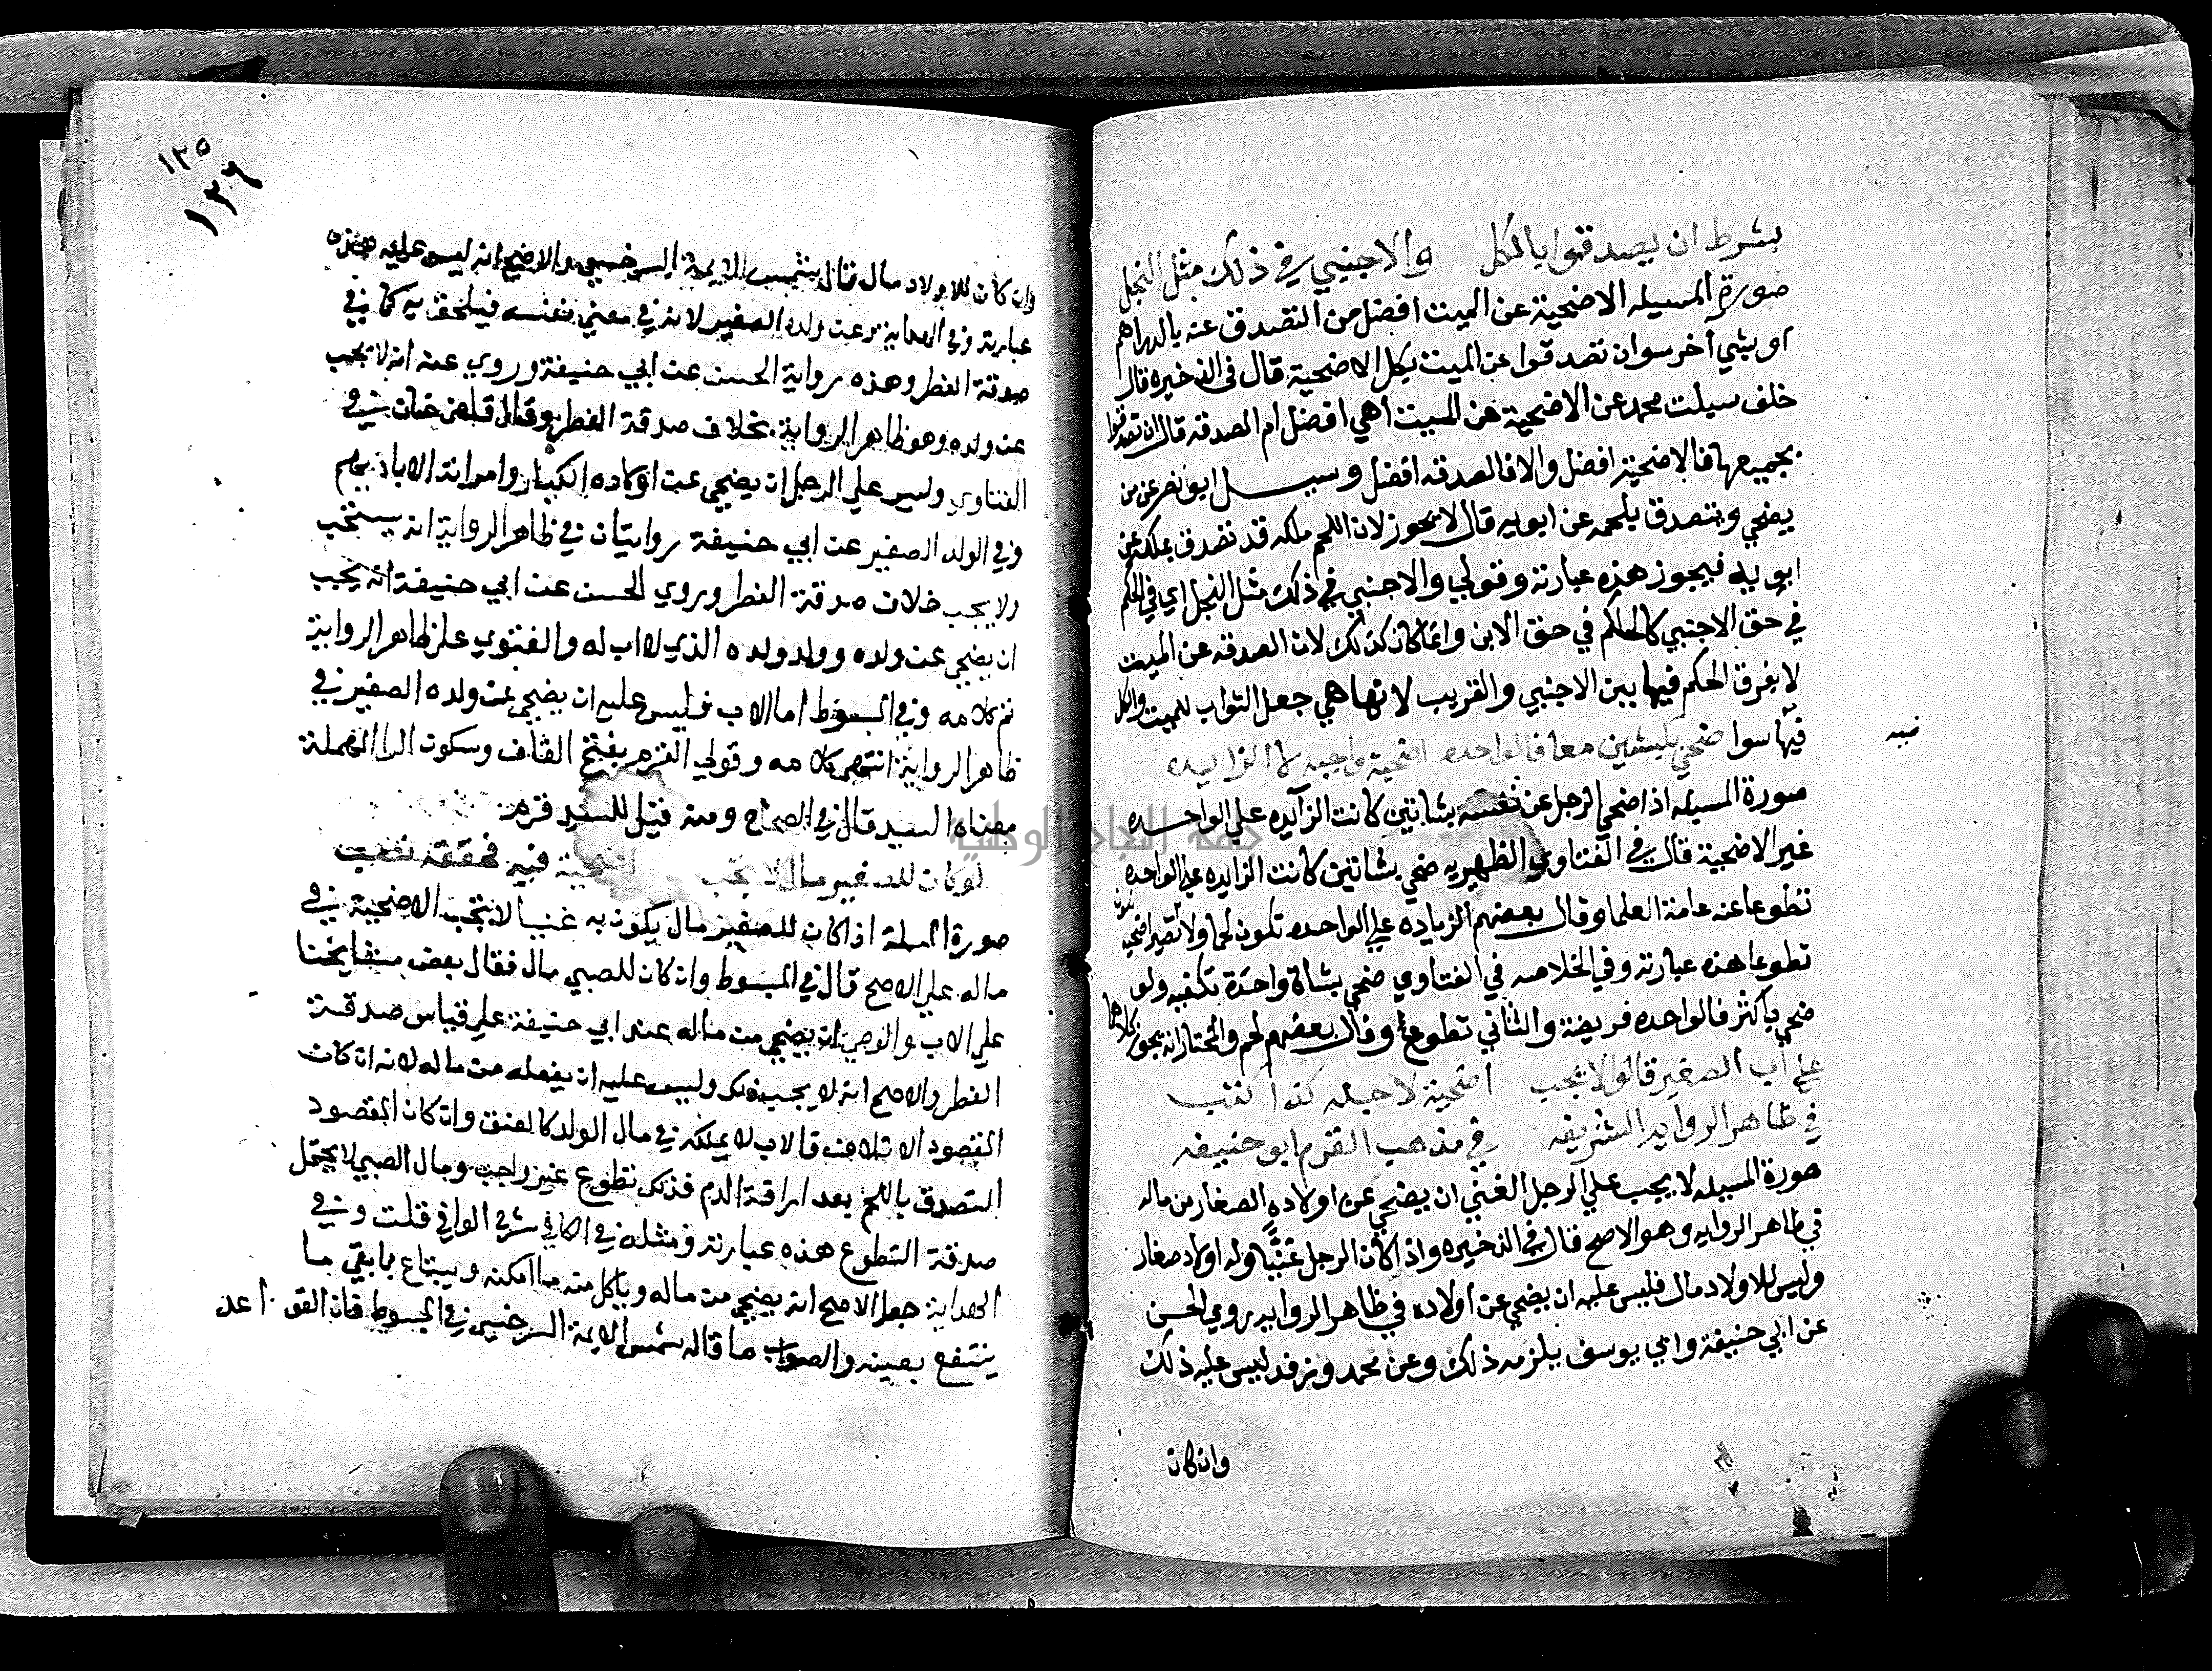 بشرط ان يصدقوا بالكل والاجنبي في ذلك مثل النجل
صورة المسيله الاضحية عن الميت افضل من التصدق عنه بالدراهم
او بشي آخر سوا ان تصدقوا عن الميت بكل الاضحية قال في الذخيره قال
خلف سيلت محمد عن الاضحية عن الميت اهي افضل ام الصدقه قال ان تصدقوا
بجميعها فالاضحية افضل والا فالصدقه افضل وسيل ابو نصر عن من
يضحي ويتصدق بلحمه عن ابويه قال لا يجوز لان اللحم ملكه قد تصدق بملكه عن
ابويه فيجوز هذه عبارته وقولي والاجنبي في ذلك مثل النجل اي في الحكم
في حق الاجنبي كالحكم في حق الابن وانما كان كذلك لان الصدقه عن الميت
لا يفرق الحكم فيها بين الاجنبي والقريب لانها هي جعل الثواب للميت والكل
فيها سوا ضحي بكبشين معا فالواحده اضحية واجبه لا الزايده
صورة المسيله اذا ضحي الرجل عن نفسه بشاتين كانت الزآيده علي الواحده
غير الاضحية قال في الفتاوي الظهيريه ضحي بشاتين كانت الزايده علي الواحده
تطوعا عنه عامة العلما وقال بعضهم الزياده علي الواحده تكون لحما ولا تصير اضحيه
تطوعا هذه عبارته وفي الخلاصه في الفتاوي ضحي بشاة واحدة تكفيه ولو
ضحي باكثر فالواحده فريضة والثاني تطوعا وقال بعضهم لحم والمختار انه يجوز كلاهما
علي أب الصغير قالوا لا تجب اضحية لاجله كذا كتب
في ظاهر الروايه الشريفه في مذهب القرم ابو حنيفه
صورة المسيله لا يجب علي الرجل الغني ان يضحي عن اولاده الصغار من ماله
في ظاهر الروايه وهو الاصح قال في الذخيره واذا كان الرجل غنيا وله اولاد صغار
وليس للاولاد مال فليس عليه ان يضحي عن اولاده في ظاهر الروايه روي الحسن
عن ابي حنيفة وابي يوسف يلزمه ذلك وعن محمد وزفر ليس عليه ذلك
وان كان
١٣٥
١٣٦
وان كان للاولاد مال قال شمس الايمة السرخسي والاصح انه ليس عليه هذه
عبارته وفي الهداية وعن ولده الصغير لانه في معني نفسه فيلحق به كما في
صدقة الفطر وهذه رواية الحسن عن ابي حنيفة وروي عنه انه لا يجب
عن ولده وهو ظاهر الرواية بخلاف صدقة الفطر وقال قاضي خان في
الفتاوي وليس علي الرجل ان يضحي عن اولاده الكبار وامراته الا باذنهم
وفي الولد الصغير عن ابي حنيفة روايتان في ظاهر الرواية انه يستحب
ولا يجب خلاف صدقة الفطر وروي الحسن عن ابي حنيفة انه يجب
ان يضحي عن ولده وولد ولده الذي لا اب له والفتوي علي ظاهر الرواية
تم كلامه وفي المبسوط اما الاب فليس عليه ان يضحي عن ولده الصغير في
ظاهر الرواية انتهي كلامه وقولي القرم بفتح القاف وسكون الرا المهملة
معناه السيد قال في الصحاح ومنه قيل للسيد قرم
لو كان للصغير مال لا تجب اضحية فيه
صورة المسلة اذا كان للصغير مال يكون به غنيا لا تجب الاضحية في
ماله علي الاصح قال في المبسوط وان كان للصبي مال فقال بعض مشايخنا
علي الاب والوصي ان يضحي من ماله عند ابي حنيفة علي قياس صدقة
الفطر والاصح انه لا يجب ذلك وليس عليه ان يفعله من ماله لانه ان كان
المقصود الاتلاف فالاب لا يملكه في مال الولد كالعتق وان كان المقصود
التصدق باللحم بعد اراقة الدم فذلك تطوع غير واجب ومال الصبي لا يحتمل
صدقة التطوع هذه عبارته ومثله في الكافي شرح الوافي قلت وفي
الهداية جعل الاصح انه يضحي من ماله وياكل منه ما امكنه ويبتاع بما بقي ما
ينتفع بعينه والصواب ما قاله شمس الايمة السرخسي في المبسوط فان القو اعد